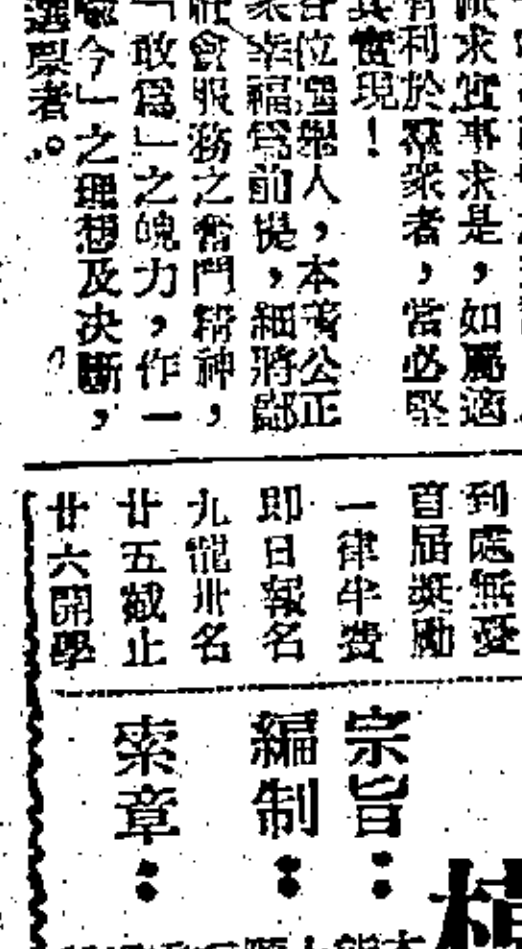 求實事求是，如屬適
有利於羣眾者，當必堅
其實現！
各位選舉人，本着公正
眾幸福爲前提，細將鄙
社會服務之奮鬥精神，
「敢爲」之魄力，作一
今」之理想及决斷，
選票者。
到處無憂
首屆獎勵
一律半費
即日報名
九龍卅名
廿五截止
廿六開學
宗旨：
編制：
索章：